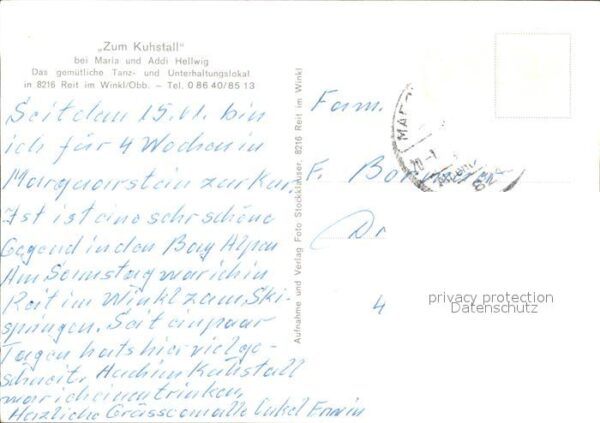 „Zum Kuhstall"
bei Maria und Addi Hellwig
Das gemütliche Tanz- und Unterhaltungslokal
in 8216 Reit im Winkl/Obb. – Tel. 0 86 40/85 13
Seit dem 15.01. bin
ich für 4 Wochen in
Marquartstein zur Kur.
Ist ist eine sehr schöne
Gegend in den Bay Alpen
Am Sonnstag war ich in
Reit im Winkl zum Ski-
springen. Seit ein paar
Tagen hats hier viel ge-
schneit. Auch im Kuhstall
war ich einen trinken,
Herzliche Grüsse an alle Onkel Erwin
Aufnahme und Verlag Foto Stockklauser, 8216 Reit im Winkl
Fam.
F.
Dr
4
privacy protection
Datenschutz